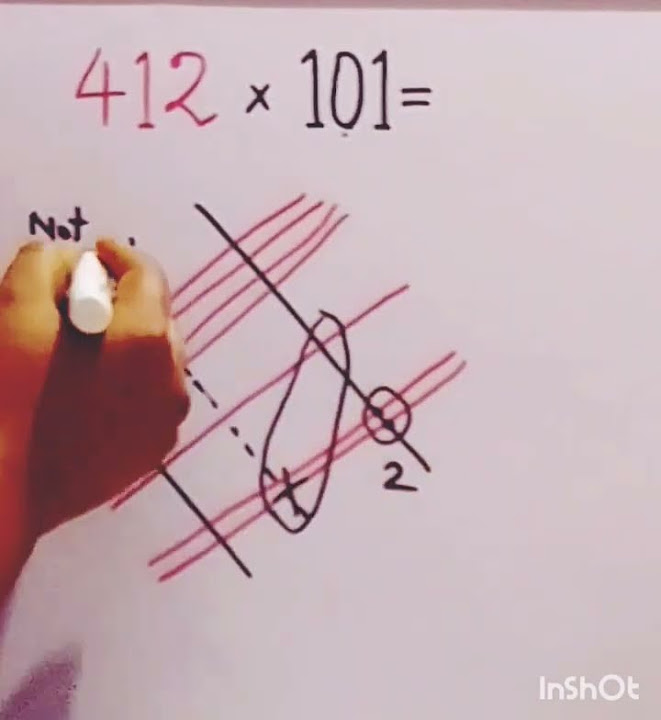 412 × 101=
Not
2
InShOt